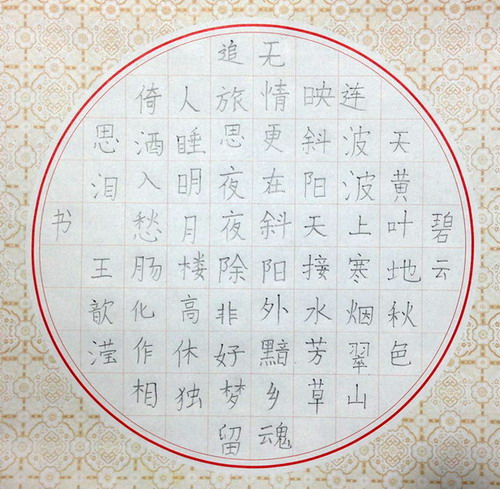 碧云
天黄叶地秋色
连波波上寒烟翠山
映斜阳天接水芳草
无情更在斜阳外黯乡魂
追旅思夜夜除非好梦留
人睡明月楼高休独
倚酒入愁肠化作相
思泪 王歆滢
书